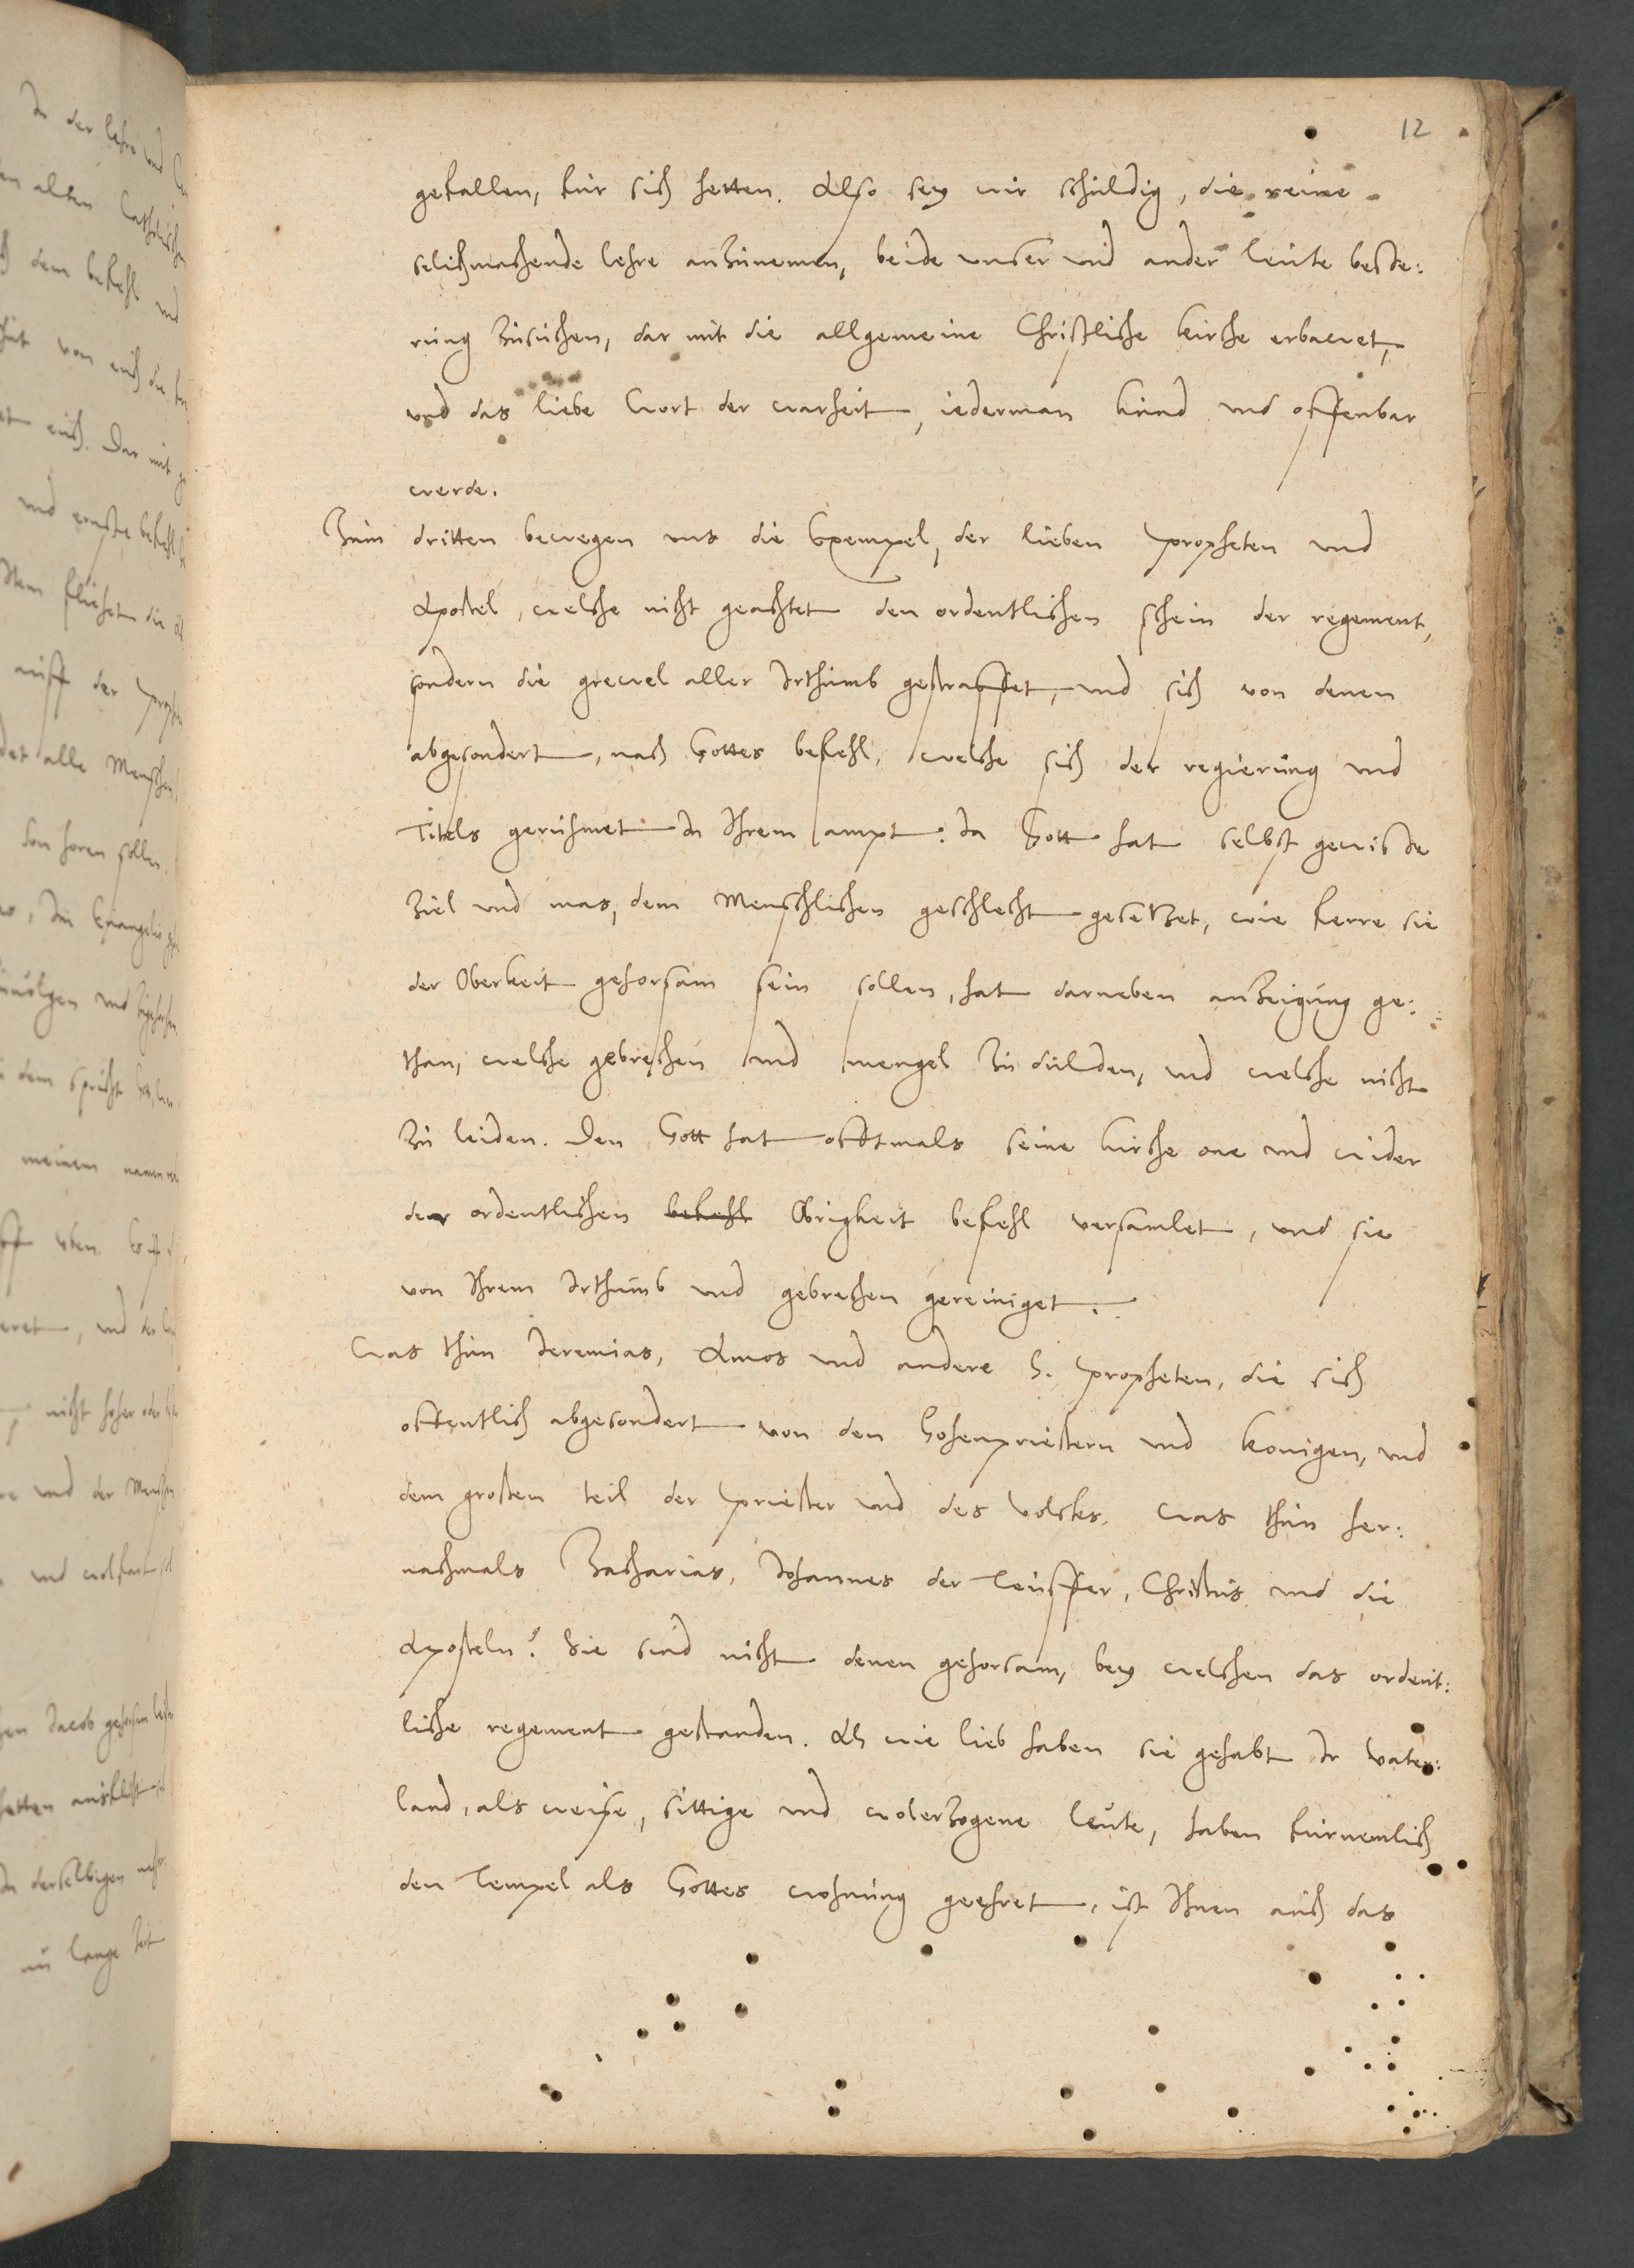 12
gefallen, fur sich hetten. Also sey wir schuldig, die reine
selichmachende lehre anzunemen, beide unser und ander leute besse:
rung zusuchen, dar mit die allgemeine Christliche kirche erbawet,
und das liebe Wort der warheit, iederman kund und offenbar
werde.
Zum dritten bewegen uns die Exempel, der lieben propheten und
Apostel, welche nicht geachtet den ordentlichen schein der regement,
sondern die grewel aller Irthumb gestraffet, und sich von denen
abgesondert, nach Gottes befehl, welche sich der regierung und
Titels gerühmet In Ihrem ampt. Ja Gott hat selbst gewisse
ziel und mas, dem Menschlichen geschlecht gesetzet, wie ferre sie
der Oberkeit gehorsam sein sollen, hat darneben anzeigung ge:
than, welche gebrechen und mengel zu dulden, und welche nicht
zu leiden. Den Gott hat offtmals seine kirche one und wider
der ordentlichen befehl Obrigkeit befehl versamlet, und sie
von Ihrem Irthumb und gebrechen gereiniget.
Was thun Jeremias, Amos und andere H. propheten, die sich
offentlich abgesondert von den Hohenpriestern und konigen, und
dem grosten teil der priester und des volckes. Was thun her:
nachmals Zacharias, Johannes der Teuffer, Christus und die
Aposteln? Sie sind nicht denen gehorsam, bey welchen das ordent:
liche regement gestanden. Ah wie lieb haben sie gehabt Ir Vater:
land, als weise, sittige und wolerzogene leute, haben furnemlich
den Tempel als Gottes wohnung geehret, ist Ihnen auch das